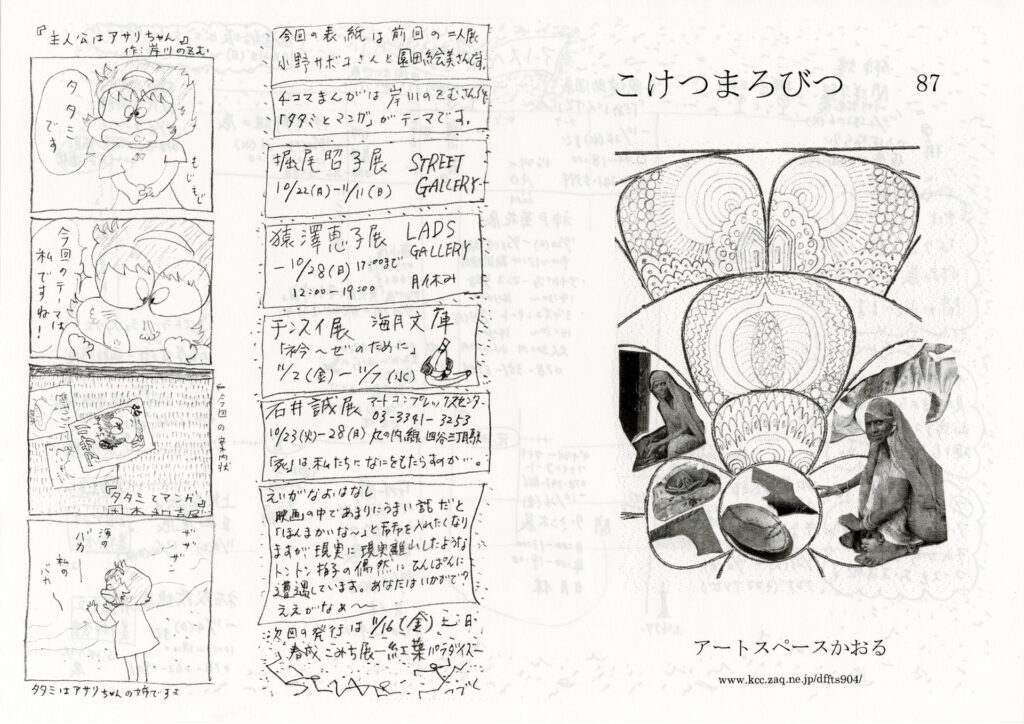 『主人公はアサリちゃん』
作:岸川のぞむ
タタミ
です
もじもじ
今回の
テーマは
私ですね!
←今回の案内状
『タタミとマンガ』
ザザザ
海の
バカ
私の
バカ
タタミはアサリちゃんの姉ですよ
今回の表紙は前回の二人展
小野サボコさんと園田絵美さんです。
4コマまんがは岸川のぞむさん作
「タタミとマンガ」がテーマです。
堀尾昭子展 STREET
GALLERY
10/22(月)-11/11(日)
猿澤恵子展 LADS
GALLERY
-10/28(日)17:00まで
12:00-19:00 月休み
チンスイ展 海月文庫
11/2(金)-11/7(水)
石井誠展 アートコンプレックスセンター
03-3341-3253
10/23(火)-28(日)丸の内線 四谷三丁目駅
「死」は、私たちになにをもたらすのか…。
えいがなおはなし
映画の中であまりにうまい話だと
「ほんまかいな~」と茶々を入れたくなり
ますが現実に現実離れしたような
トントン拍子の偶然にひんぱんに
遭遇しています。あなたはいかがで?
ええがなぁ~
次回の発行は11/16(金)
春成こみち展-紅葉パラダイス-
つづく
こけつまろびつ 87
アートスペースかおる
www.kcc.zaq.ne.jp/dffts904/